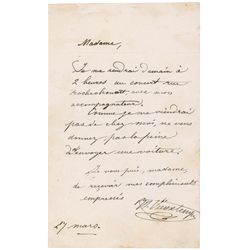 Madame,
Je me rendrai demain à
2 heures au concert rue
Rochechouart avec mon
accompagnateur.
Comme ça me viendrai
pas de chez moi, ne vous
donnez pas la peine
d'envoyer une voiture.
Je vous prie, madame,
de recevoir mes compliments
empressés
H. Vieuxtemps
27 mars.